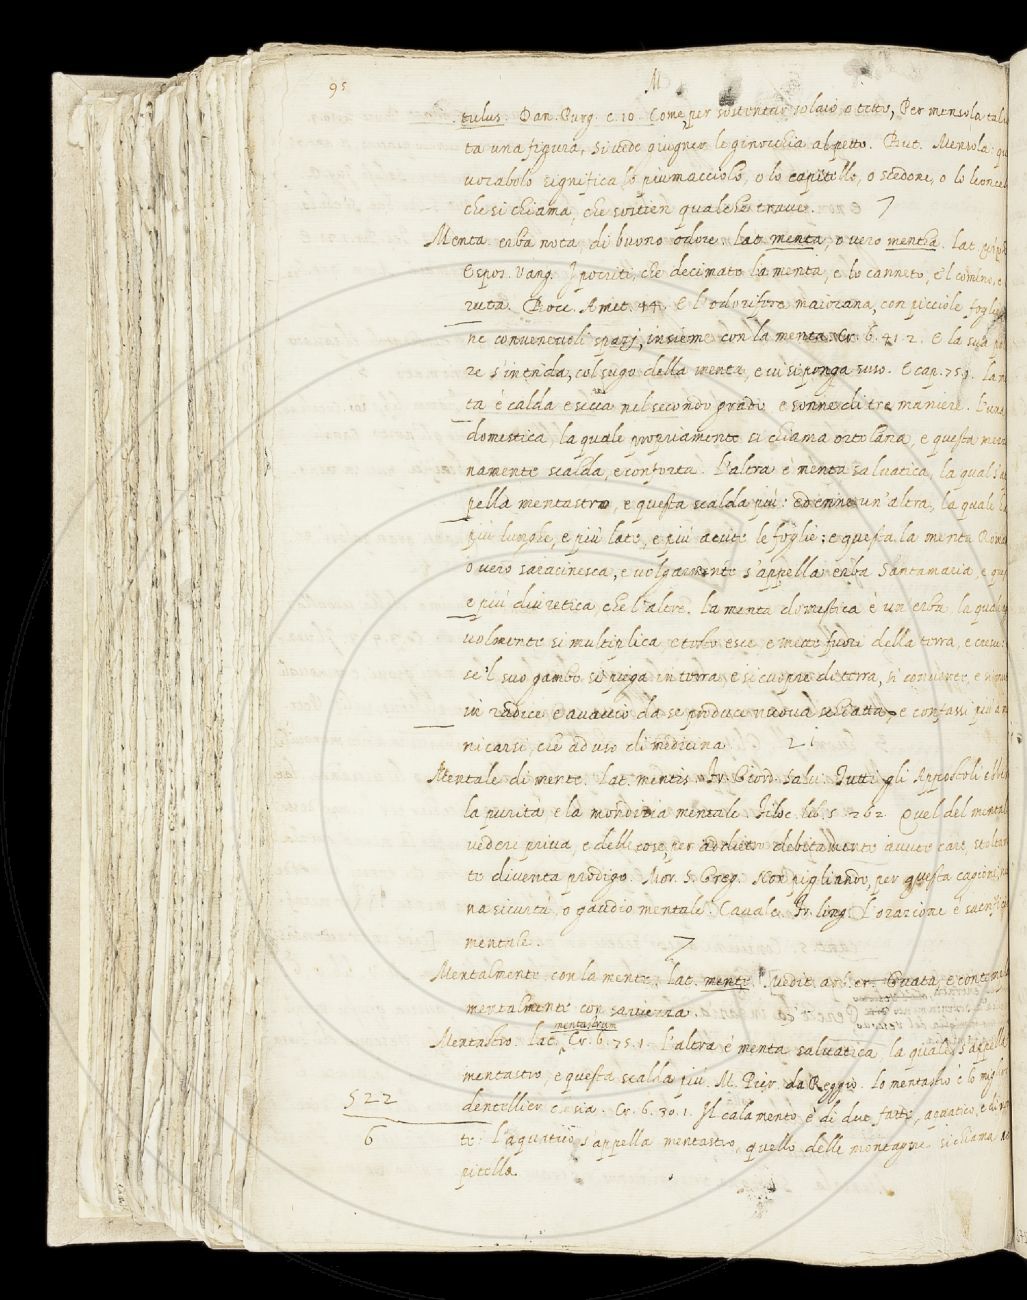 95
M
tulus. Dan. Purg. c. 10. Come, per sostentar solaio o tetto, Per mensola tal
ta una figura, si vede giugner le ginocchia al petto. But. Mensola: qu
vocabolo significa lo piumacciolo, o lo capitello, o scedone, o lo leoncel
che si chiama, che sostien qualche trave. 7
Menta. erba nota, di buono odore. lat. menta, o vero mentha. lat.
Espos. Vang. Ipocriti, che decimate la menta, e lo canneto, e 'l comino, e
ruta. Bocc. Amet. 44. E l'odorifera maiorana, con picciole foglie
ne convenevoli spazj, insieme con la menta. Cr. 6. 41. 2. E la sua
re s'intenda, col sugo della menta, e vi si ponga suso. E cap. 75. 1. La
ta è calda e secca nel secondo grado, e sonne di tre maniere. L'una
domestica, la quale propriamente si chiama ortolana, e questa
namente scalda, e conforta. L'altra è menta salvatica, la qual
pella mentastro, e questa scalda più: ed enne un'altra, la quale
più lunghe, e più late, e più acute le foglie: e questa la menta Roma
o vero saracinesca, e volgarmente s'appella erba Santamaria, e que
e più diuretica, che l'altre. La menta domestica è un erba la quale
volmente si multiplica, e tosto esce e mette fuori della terra, e cresce:
se 'l suo gambo si piega in terra, e si cuopre di terra, si converte,
in radice e avaccio da se produce nuova schiatta, e confassi più a
nicarsi, che ad uso di medicina. 21
Mentale. di mente. lat. mentis. Fr. Giord. Salv. Tutti gli Appostoli ebber
la purità e la mondizia mentale. Filoc. lib. 5. 262. Quel del mental
vedere priva, e delle cose, per addietro debitamente avute care, stoltamen
te diventa prodigo. Mor. S. Greg. Non pigliando, per questa cagione,
na sicurtà, o gaudio mentale. Cavalc. Fr. ling. L'orazione è sacrificio
mentale. 7
Mentalmente. con la mente. lat. mente. vedit. an. cr. Guata, e contempla
mentalmente con savienza.
mentastrum
Mentastro. lat. Cr. 6. 75. 1. L'altra è menta salvatica, la quale s'appella
mentastro, e questa scalda più. M. Pier. da Reggio. Lo mentastro è lo miglior
dentellier Cr. 6. 30. 1. Il calamento è di due fatte, aquatico, e di
te: L'aquatico s'appella mentastro, quello delle montagne si chiama
pitella.
522
6